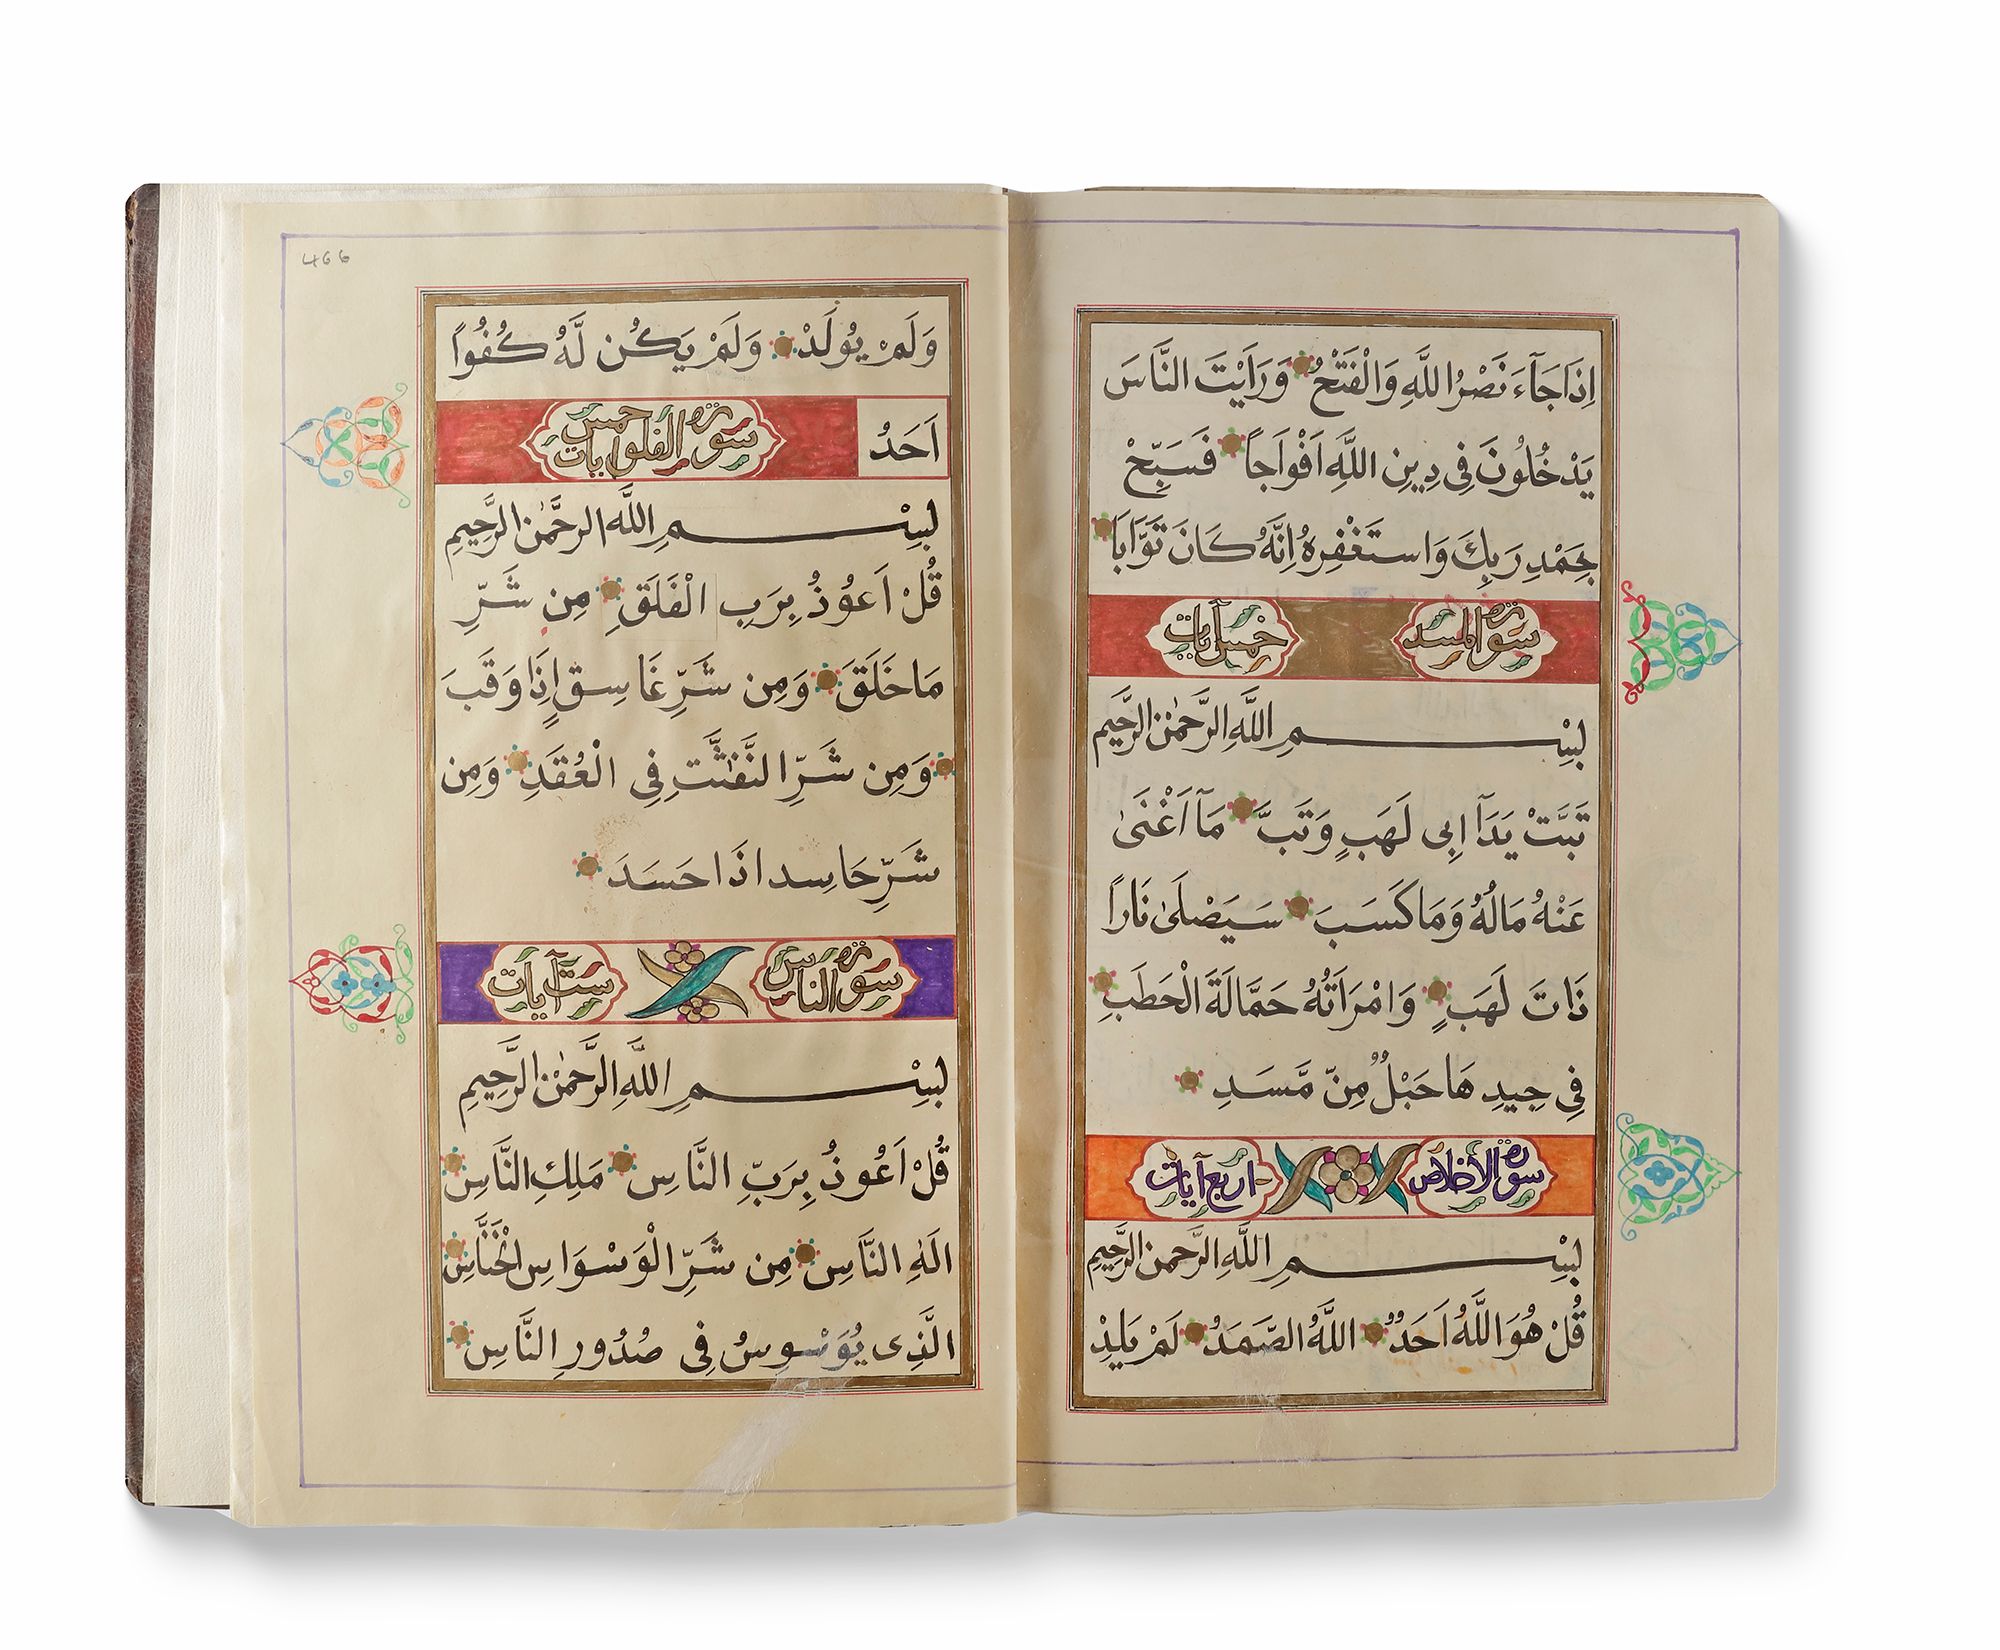 اِذَا جَآءَ نَصْرُ اللَّهِ وَالْفَتْحُ وَرَاَيْتَ النَّاسَ
يَدْخُلُونَ فِي دِينِ اللَّهِ اَفْوَاجاً فَسَبِّحْ
بِحَمْدِ رَبِكَ وَاسْتَغْفِرهُ اِنَّهُ كَانَ تَوَّاباً
سورة المسد خمس آيات
بِسْمِ اللَّهِ الرَّحْمٰنِ الرَّحِيم
تَبَّتْ يَدَآ اَبِي لَهَبٍ وَتَبَّ مَآ اَغْنَىٰ
عَنْهُ مَالُهُ وَمَا كَسَبَ سَيَصْلَىٰ نَاراً
ذَاتَ لَهَبٍ وَامْرَاَتُهُ حَمَّالَةَ الْحَطَبِ
فِي جِيدِ هَا حَبْلٌ مِنّ مَّسَدِ
سورة الأخلاص اربع آيات
بِسْمِ اللَّهِ الرَّحمنِ الرَّحِيمِ
قُلْ هُوَ اللَّهُ اَحَدٌ اللَّهُ الصَّمَدُ لَمْ يَلِدْ
466
وَلَمْ يُولَدْ وَلَمْ يَكُن لَّهُ كُفُواً
اَحَدُ
سورة الفلق خمس آيات
بِسْمِ اللَّهِ الرحَّمٰنِ الرَّحِيمِ
قُلْ اَعُوذُ بِرَبِ الْفَلَقِ مِن شَرِّ
مَا خَلَقَ وَمِن شَرِّ غَاسِقٍ إِذَا وَقَبَ
وَمِن شَرِّ النَّفّٰثَٰتِ فِي الْعُقَدِ وَمِن
شَرِّ حَاسِد اذَا حَسَدَ
سورة الناس ست آيات
بِسْمِ اللَّهِ الرَّحْمٰنِ الرَّحِيمِ
قُلْ اَعُوذُ بِرَبِّ النَّاسِ مَلِكِ النَّاسِ
الَهِ النَّاسِ مِن شَرِّ الْوَسْوَاسِ الْخَنَّاسِ
الَّذِى يُوَسْوِسُ فِي صُدُورِ النَّاسِ